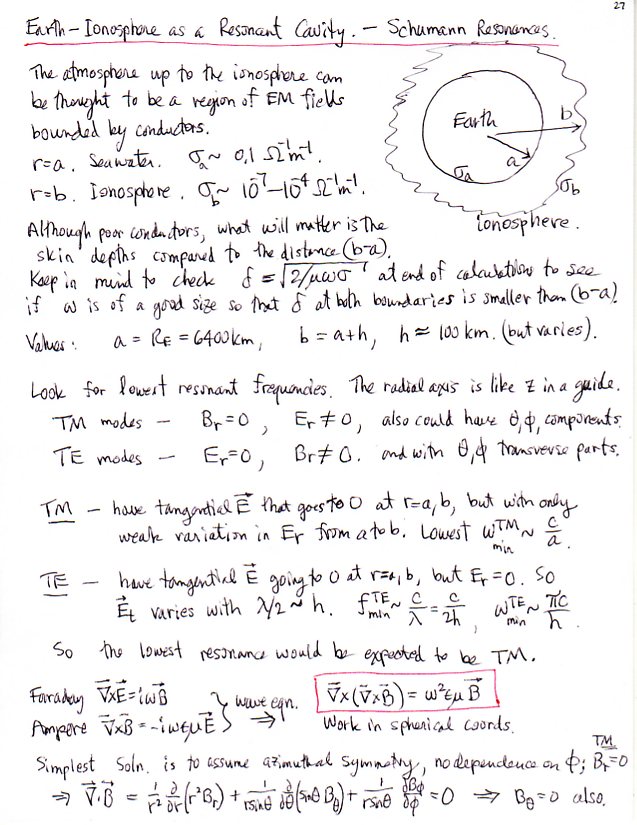 27
Earth-Ionosphere as a Resonant Cavity. – Schumann Resonances.
The atmosphere up to the ionosphere can
be thought to be a region of EM fields
bounded by conductors.
r=a. Seawater. σₐ ~ 0.1 Ω⁻¹m⁻¹.
r=b. Ionosphere. σ_b ~ 10⁻⁷–10⁻⁴ Ω⁻¹m⁻¹.
Earth
b
a
σₐ
σ_b
ionosphere.
Although poor conductors, what will matter is the
skin depths compared to the distance (b-a).
Keep in mind to check δ = √(2/μωσ) at end of calculations to see
if ω is of a good size so that δ at both boundaries is smaller than (b-a).
Values: a = R_E = 6400 km, b = a+h, h ≈ 100 km. (but varies).
Look for lowest resonant frequencies. The radial axis is like z in a guide.
TM modes – B_r=0, E_r≠0, also could have θ,φ components.
TE modes – E_r=0, B_r≠0. and with θ,φ transverse parts.
TM – have tangential E⃗ that goes to 0 at r=a,b, but with only
weak variation in E_r from a to b. Lowest ω_min^TM ~ c/a.
TE – have tangential E⃗ going to 0 at r=a,b, but E_r=0. So
E⃗_t varies with λ/2 ~ h. f_min^TE ~ c/λ = c/2h, ω_min^TE ~ πc/h.
So the lowest resonance would be expected to be TM.
Faraday ∇⃗×E⃗ = iωB⃗
Ampere ∇⃗×B⃗ = -iωεμE⃗ } wave eqn. ⇒ ∇⃗×(∇⃗×B⃗) = ω²εμB⃗
Work in spherical coords.
Simplest Soln. is to assume azimuthal symmetry, no dependence on φ; TM B_r=0
⇒ ∇⃗·B⃗ = 1/r² ∂/∂r (r²B_r) + 1/(r sinθ) ∂/∂θ (sinθ B_θ) + 1/(r sinθ) ∂B_φ/∂φ = 0 ⇒ B_θ=0 also.